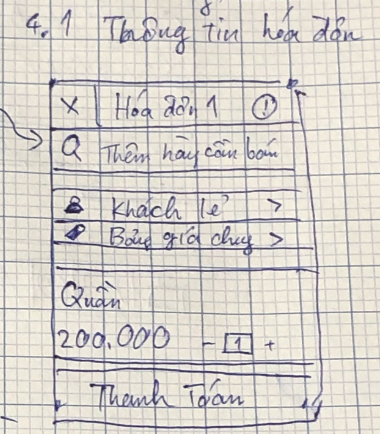 4.1 Thông tin hóa đơn
X Hóa đơn 1
Thêm hàng cần bán
Khách lẻ >
Bảng giá chung >
Quần
200.000 - 1 +
Thanh Toán